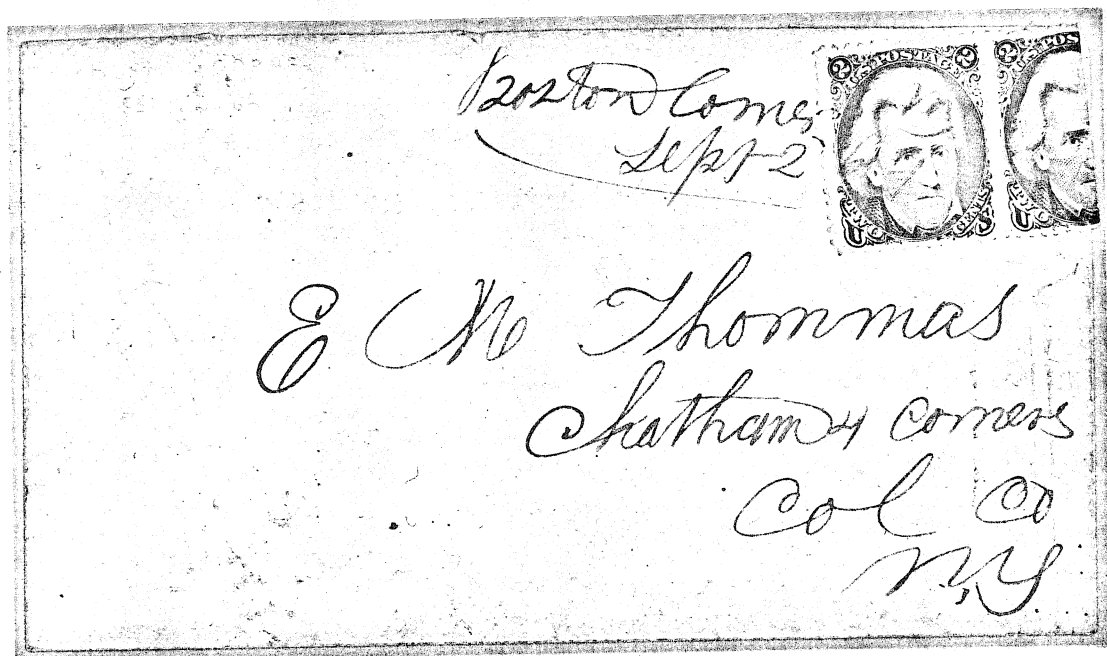 Boston Corner
Sept 2
2 U.S. POSTAGE 2
U TWO CENTS S.
2 U.S. POS
U TWO
E M Thommas
Chatham 4 Corners
Col Co
N,Y